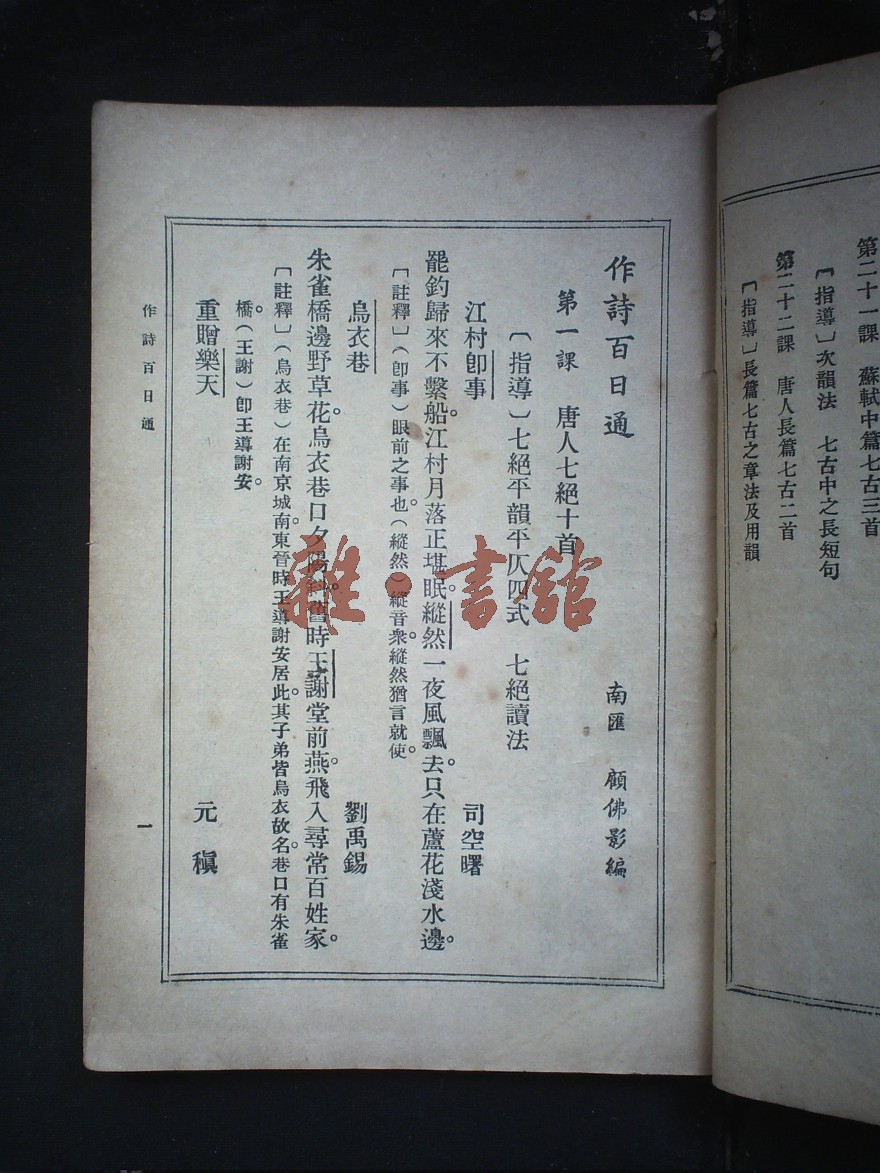 第二十一課　蘇軾中篇七古三首
〔指導〕次韻法　七古中之長短句
第二十二課　唐人長篇七古二首
〔指導〕長篇七古之章法及用韻
作詩百日通
南匯　顧佛影編
第一課　唐人七絕十首
〔指導〕七絕平韻平仄四式　七絕讀法
江村卽事　司空曙
罷釣歸來不繫船。江村月落正堪眠。縱然一夜風飄去。只在蘆花淺水邊。
〔註釋〕（卽事）眼前之事也。（縱然）縱音衆。縱然猶言就使。
烏衣巷　劉禹錫
朱雀橋邊野草花。烏衣巷口夕陽斜。舊時王謝堂前燕。飛入尋常百姓家。
〔註釋〕（烏衣巷）在南京城南。東晉時王導謝安居此。其子弟皆烏衣。故名。巷口有朱雀
橋。（王謝）卽王導謝安。
重贈樂天　元稹
作詩百日通
一
雜·書館